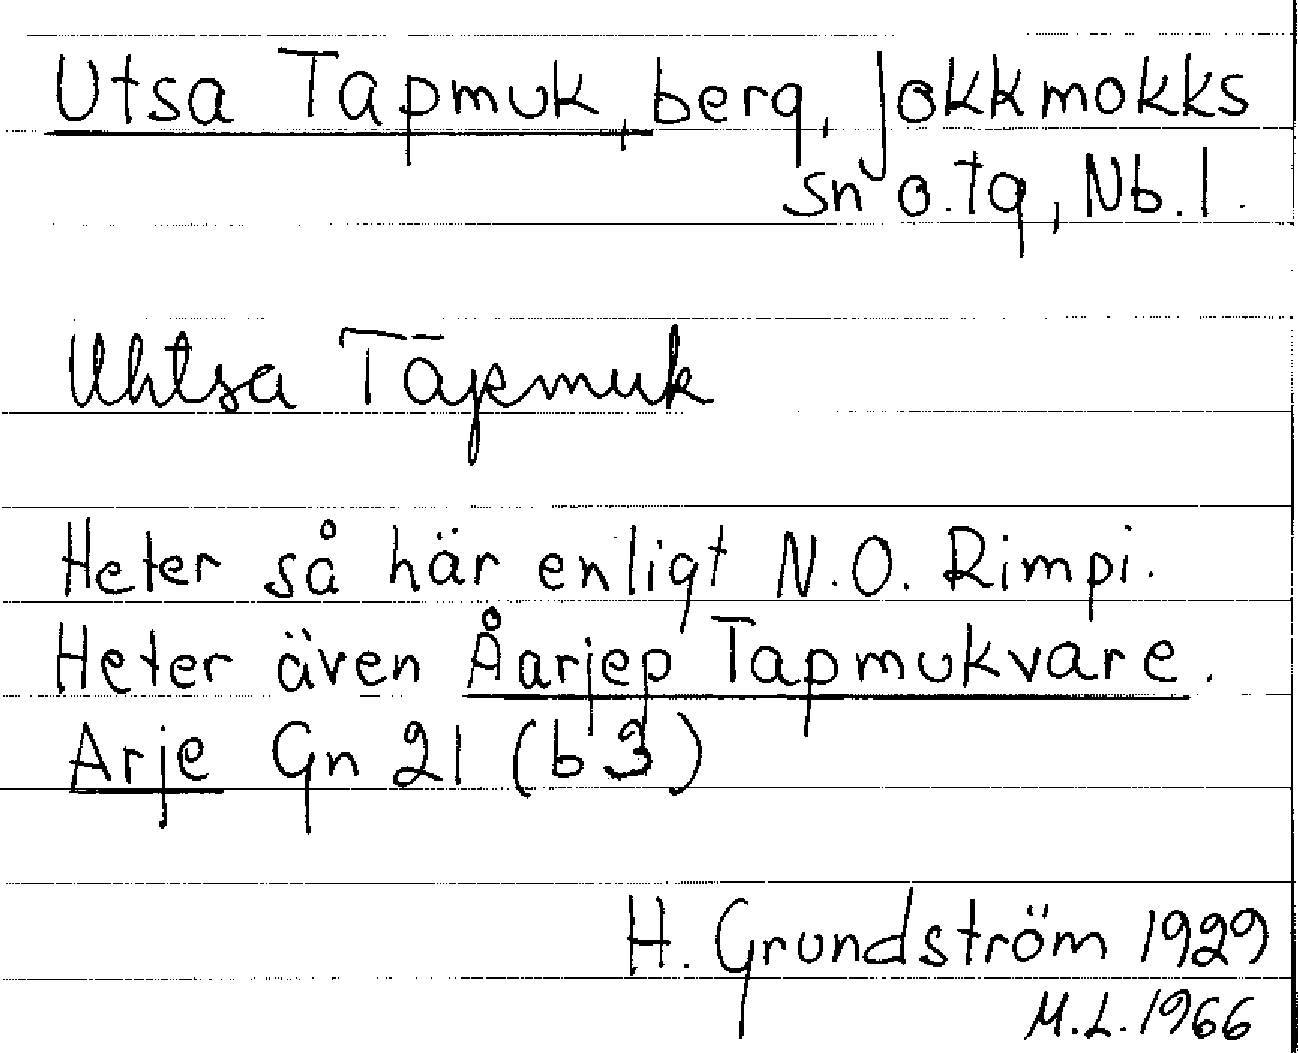 Utsa Tapmuk, berg, Jokkmokks
sn o. tg, Nb. l.
Uhtsa Tāpmuk
Heter så här enligt N.O. Rimpi.
Heter även Åarjep Tapmukvare.
Arje Gn 21 (b3)
H. Grundström 1929
M.L. 1966